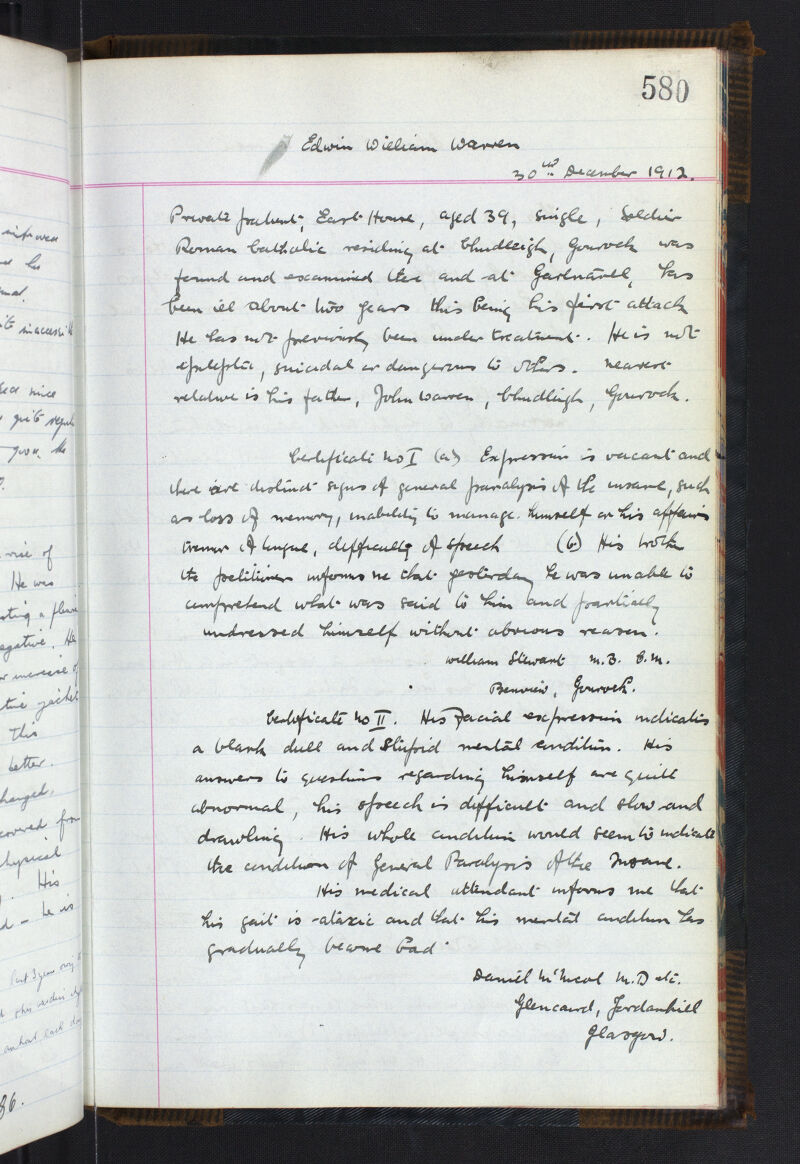 580
Edwin William Warren
30th December 1912.
Private patient, East House, aged 39, single, Soldier
Roman Catholic residing at Chudleigh, Gourock was
found and examined there and at Gartnavel, has
been ill about two years this being his first attack
He has not previously been under treatment. He is not
epileptic, suicidal or dangerous to others. nearest
relative is his father, John Warren, Chudleigh, Gourock.
Certificate No I (a) Expression is vacant and
there are distinct signs of general paralysis of the insane, such
as loss of memory, inability to manage himself or his affairs
tremor of tongue, difficulty of speech (b) His brother
the petitioner informs me that yesterday he was unable to
comprehend what was said to him and partially
undressed himself without obvious reason.
William Stewart M.B. C.M.
Benview, Gourock.
Certificate No II. His Facial expression indicates
a blank dull and stupid mental condition. His
answers to questions regarding himself are quite
abnormal, his speech is difficult and slow and
drawling. His whole condition would seem to indicate
the condition of General Paralysis of the Insane.
His medical attendant informs me that
his gait is ataxic and that his mental condition has
gradually become bad.
Daniel McNicol M.D etc.
Glencairn, Jordanhill
Glasgow.
rise of
He was
egative. He
jacket
This
better.
hanged,
covered from
physical
His
d - he is
86.